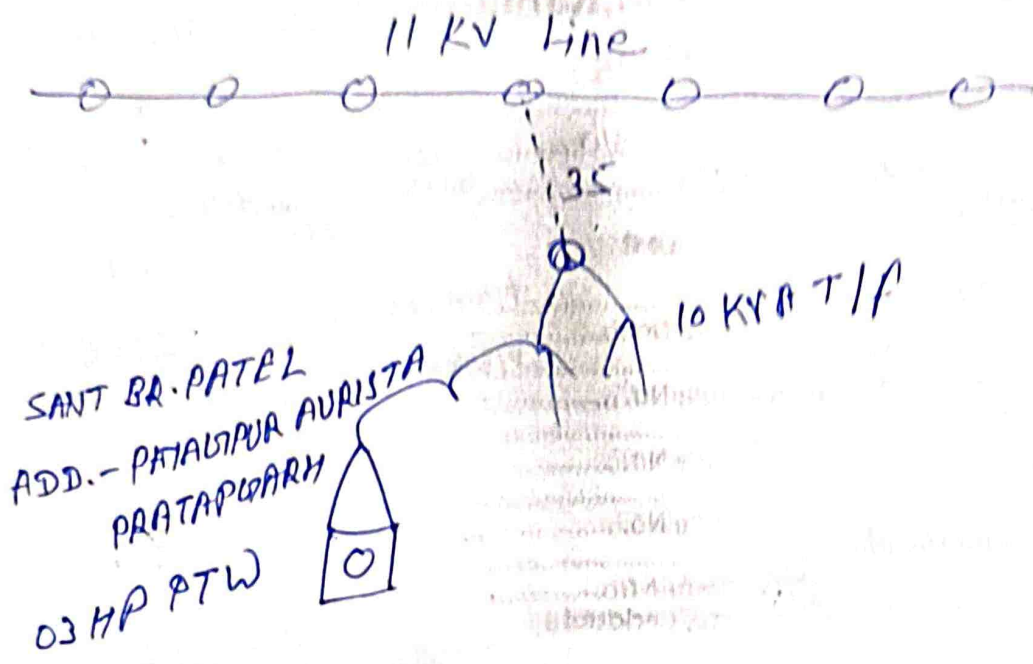 11 KV Line
35
10 KVA T/F
SANT BR. PATEL
ADD.- AURISTA
PRATAPGARH
03 HP PTW